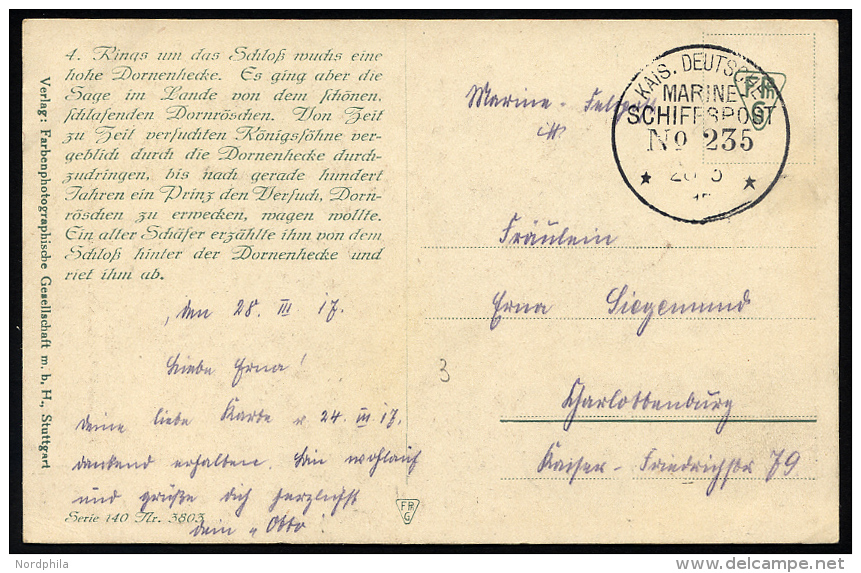 4. Rings um das Schloß wuchs eine
hohe Dornenhecke. Es ging aber die
Sage im Lande von dem schönen,
schlafenden Dornröschen. Von Zeit
zu Zeit versuchten Königssöhne ver-
geblich durch die Dornenhecke durch-
zudringen, bis nach gerade hundert
Jahren ein Prinz den Versuch, Dorn-
röschen zu erwecken, wagen wollte.
Ein alter Schäfer erzählte ihm von dem
Schloß hinter der Dornenhecke und
riet ihm ab.
Verlag: Farbenphotographische Gesellschaft m. b. H., Stuttgart
, den 28. III 17.
Liebe Erna!
Deine liebe Karte v. 24. III 17.
dankend erhalten. Bin wohlauf
und grüße Dich herzlichst
Dein "Otto"
Serie 140 Nr. 3803
FPh
G
3
Marine - Feldpost
KAIS. DEUTSCHE
MARINE
SCHIFFSPOST
No 235
FPh
G
Fräulein
Erna Siegemund
Charlottenburg
Kaiser-Friedrichstr 79
Nordphila
delcampe.net